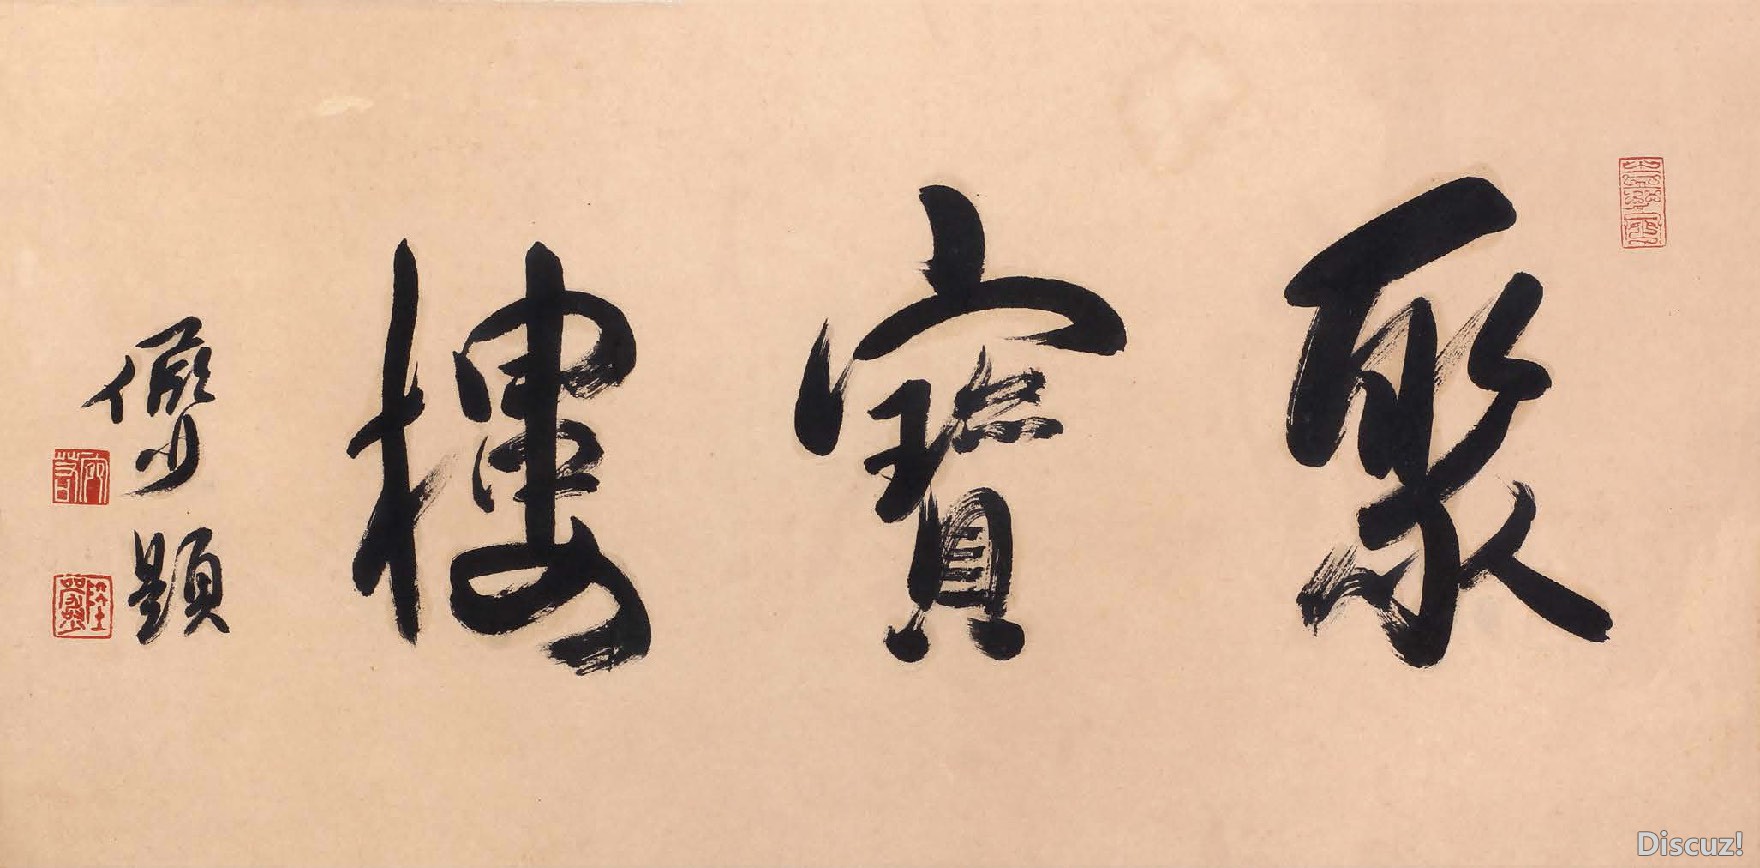 聚寶樓
儼少題
Discuz!